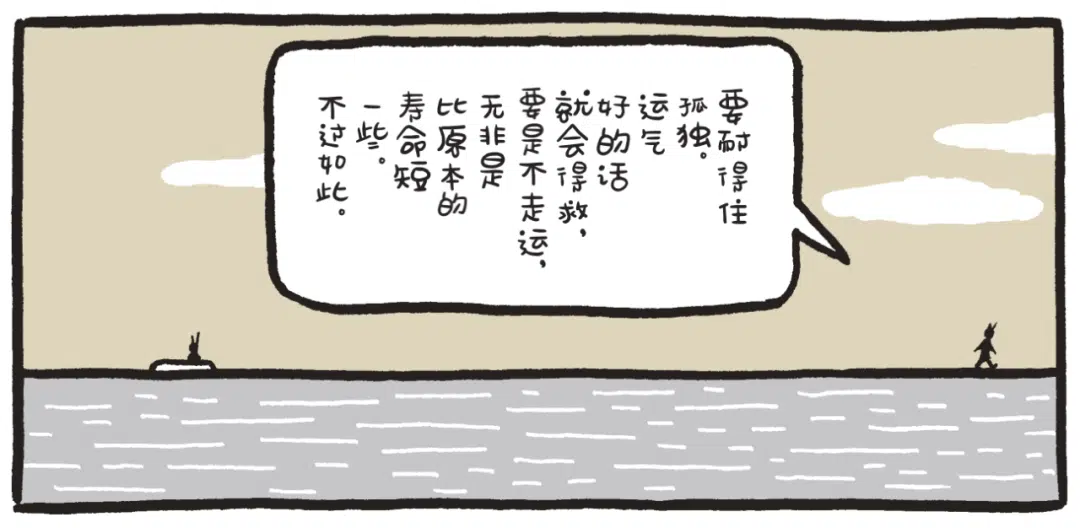 要耐得住
孤独。
运气
好的话
就会得救，
要是不走运，
无非是
比原本的
寿命短
一些。
不过如此。